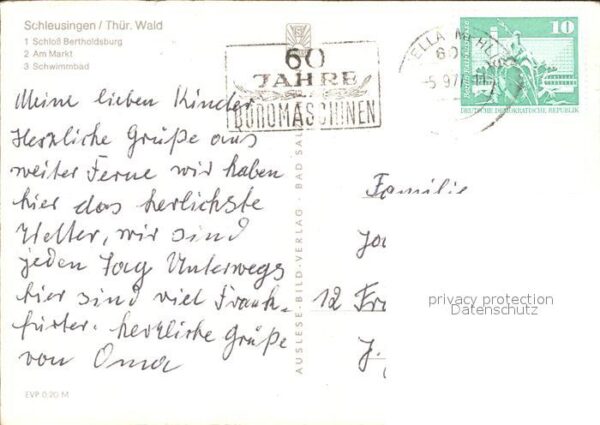 Schleusingen / Thür. Wald
1 Schloß Bertholdsburg
2 Am Markt
3 Schwimmbad
60
JAHRE
BÜROMASCHINEN
10
DEUTSCHE DEMOKRATISCHE REPUBLIK
Meine lieben Kinder
Herzliche Grüße aus
weiter Ferne wir haben
hier das herlichste
Wetter, wir sind
jeden Tag Unterwegs
hier sind viel Frank-
furter. herzliche Grüße
von Oma
AUSLESE-BILD-VERLAG · BAD SAL
Familie
12 Fra
privacy protection
Datenschutz
EVP 0,20 M